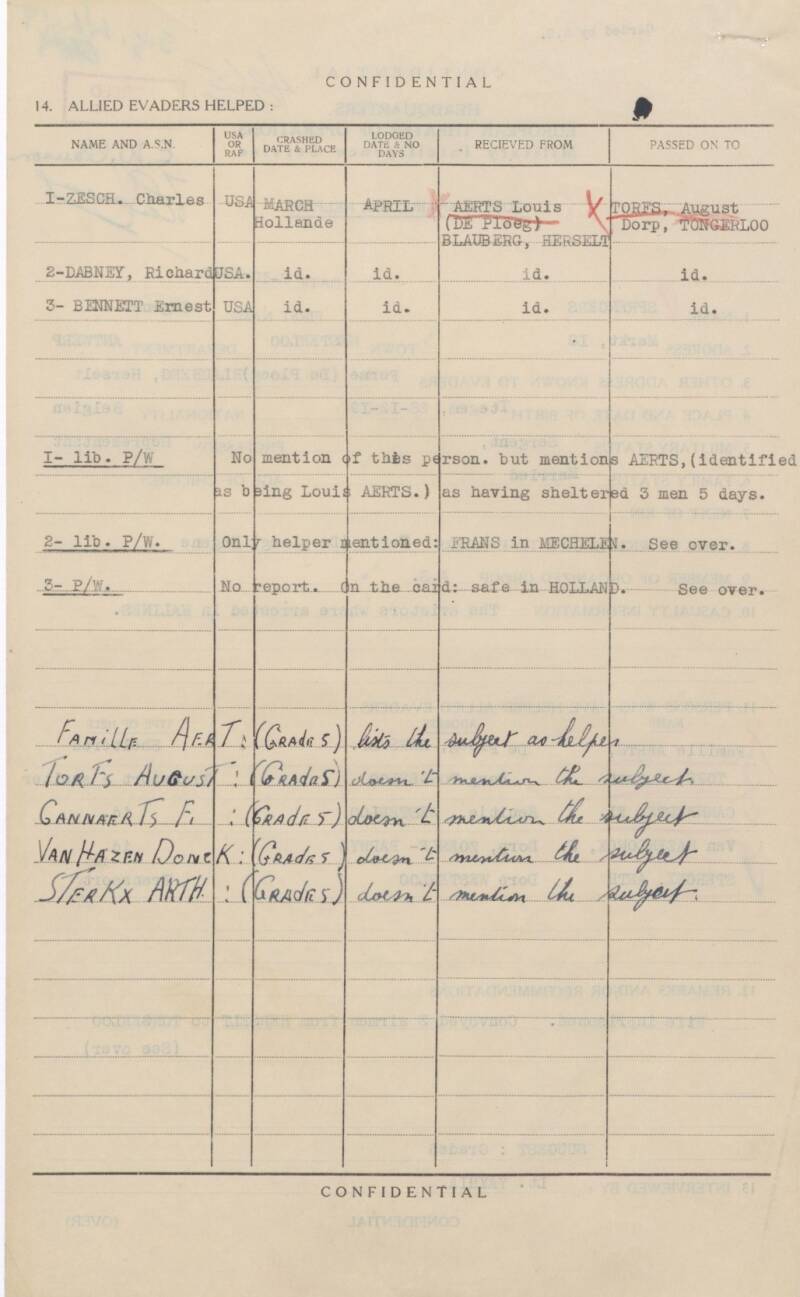 CONFIDENTIAL
14. ALLIED EVADERS HELPED :
NAME AND A.S.N. USA OR RAF CRASHED DATE & PLACE LODGED DATE & NO DAYS RECIEVED FROM PASSED ON TO
I-ZESCH. Charles USA MARCH APRIL AERTS Louis TORFS, August
Hollande (DE Ploeg) Dorp, TONGERLOO
BLAUBERG, HERSELT
2-DABNEY, Richard USA. id. id. id. id.
3- BENNETT Ernest USA id. id. id. id.
I- lib. P/W No mention of this person. but mentions AERTS,(identified
as being Louis AERTS.) as having sheltered 3 men 5 days.
2- lib. P/W. Only helper mentioned: FRANS in MECHELEN. See over.
3- P/W. No report. On the card: safe in HOLLAND. See over.
FAMILLE AERT : (GRADE 5) lists the subject as helper
TORFS AUGUST : (GRADE 5) doesn't mention the subject
CANNAERTS F. : (GRADE 5) doesn't mention the subject
VAN HAZEN DONCK : (GRADE 5) doesn't mention the subject
STERKX ARTH. : (GRADE 5) doesn't mention the subject.
CONFIDENTIAL